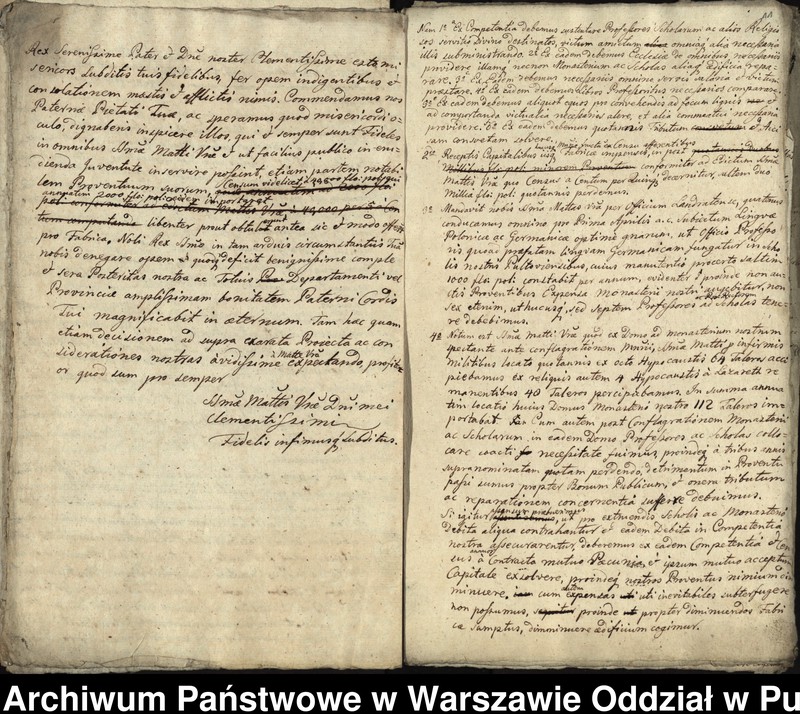 Rex Serenissime Pater et Dne noster Clementissime esto mi
sericors Subditis tuis fidelibus, fer opem indigentibus et
consolationem mæstis et afflictis nimis. Commendamus nos
Paternæ Pietati Tuæ, ac speramus quod misericordi
culo, dignaberis inspicere illos, qui et semper sunt Fideles
in omnibus Srnæ Matti Vræ et ut facilius publico in eru-
dienda Juventute inservire possint, etiam partem notabi
lem Proventuum suorum,
liberter prout obtulit antea sic et modo offert
pro Fabrica, Noli Rex Srnte in tam arduis circumstantiis
nobis denegare opem et quod deficit benignissime comple
et sera Posteritas nostra ac Totius Departamenti vel
Provinciæ amplissimam bonitatem Paterni Cordis
Tui magnificabit in æternum. Tam hac quam
etiam decisionem ad supra exarata Proiecta ac con
siderationes nostras avidissime a Matte Vra expectando, profite
or quod sum pro semper
Srnæ Mattis Vræ Dni mei
Clementissimi
Fidelis infimusq Subditus.
Nam 1º Ex Competentia debemus sustentare Professores Scholarum ac alios Religio
sos servitio Divino destinatos, victum amictum omniaq alia necessaria
illis subministrando. 2º Ex eadem debemus Ecclesiæ de omnibus necessariis
providere illamq necnon Monasterium ac Scholas aliaq Ædificia repa
rare. 3º Ex eadem debemus necessariis omnino servis salaria et victum
præstare. 4º Ex eadem debemus Libros Professoribus necessarios comparare.
5º Ex eadem debemus aliquot equos pro convehendis ad focum lignis
ac comportanda victualia necessarios alere, et alia commoditati necessaria
providere. 6º Ex eadem debemus quotannis Tributum et Acci
sam consvetam solvere.
2º Receptis Capitalibus
conformiter ad Edictum Srnæ
Mattis Vræ quo Census a Centum per Quinq decernitur, saltem duo
Millia flo: pol: quotannis perdemus.
3º Mandavit nobis Srna Mattas Vra per Officium Landratense, quatenus
conducamus omnino pro Prima Aprilis a.c. Subiectum Linguæ
Polonicæ ac Germanicæ optime gnarum, ut Officio Professo
ris quoad præfatam linguam Germanicam fungatur in Scho
lis nostris Pultoviensibus, cuius manutentio procerto saltem
1000 flo: pol: constabit per annum, evidenter proinde non au
ctis Proventibus Expensa Monasterii nostri augebitur, non
Sex etenim, uthucusq, sed Septem Professores ad Scholas tene
re debebimus.
4º Notum est Srnæ Matti Vræ quod ex Domo ad monasterium nostrum
spectante ante conflagrationem Munii, Srnæ Mattis pro infirmis
militibus locata quotannis ex octo Hypocaustis 64 Taleros acci
piebamus ex reliquis autem 4 Hypocaustis à Lazareth re
manentibus 48 Taleros percipiebamus. In summa annua
tim locatio huius Domus Monasterio nostro 112 Taleros im-
portabat. Cum autem post Conflagrationem Monasterii
ac Scholarum, in eadem Domo Professores ac Scholas collo-
care coacti necessitate fuimus, proindeq à tribus annis
supranominatam quotam perdendo, detrimentum in Proventu
passi sumus propter Bonum Publicum, et onera tributum
ac reparationem concernentia sufferre debuimus.
Si igitur ut pro extruendis Scholis ac Monasterio
Debita aliqua contrahantur et eadem Debita in Competentia
nostra assecurarentur, deberemus ex eadem Competentia et Cen
sus à Contracta mutuo Pecunia, et ipsum mutuo acceptum
Capitale exsolvere, proindeq nostros Proventus nimium im
minuere, cum autem expensas uti inevitabiles subterfugere
non possumus, proinde propter diminuendos Fabri
cæ sumptus, dimminuere ædificium cogimur.
Archiwum Państwowe w Warszawie Oddział w Pu